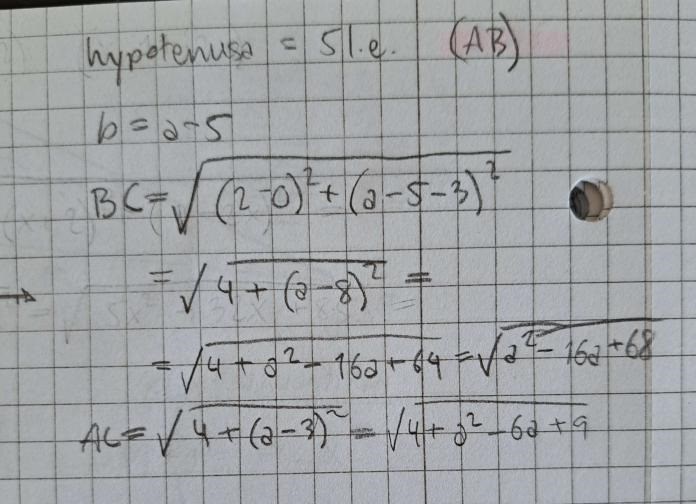 hypotenusa = 5 l.e. (AB)
b = a-5
BC = √((2-0)² + (a-5-3)²)
= √(4 + (a-8)²) =
= √(4 + a² - 16a + 64) = √(a² - 16a + 68)
AC = √(4 + (a-3)²) = √(4 + a² - 6a + 9)